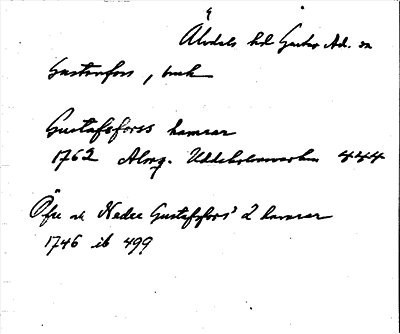 Älvdals hd Gustav Ad. sn
Gustavsfors, bruk
Gustafsforss hamrar
1762 Almg. Uddeholmsverken 444
Öfre och Nedre Gustafsfors' 2 hamrar
1746 ib 499